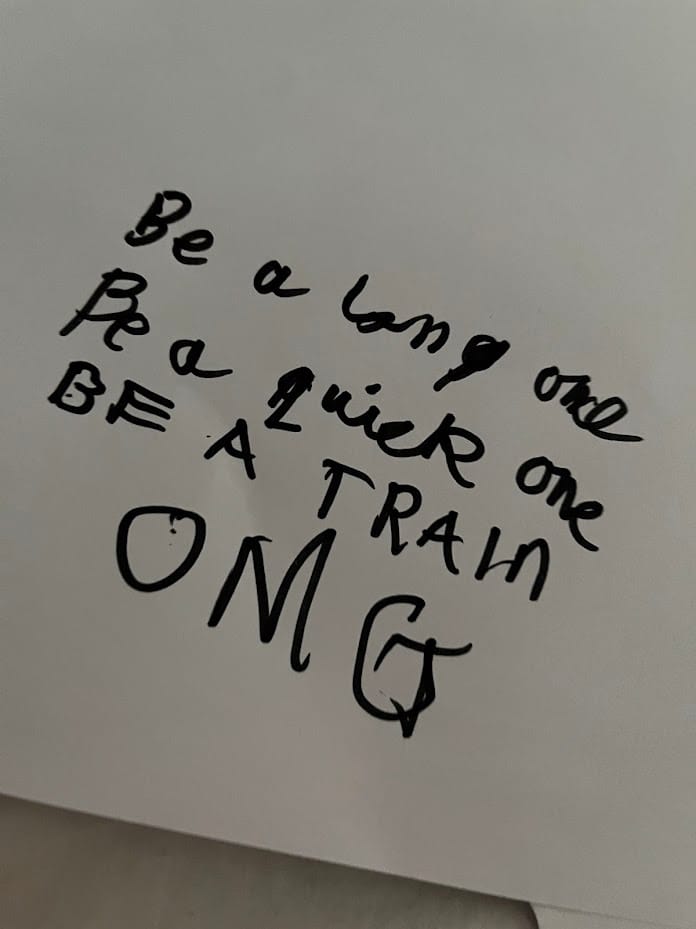 Be a long one
Be a quick one
BE A TRAIN
OMG